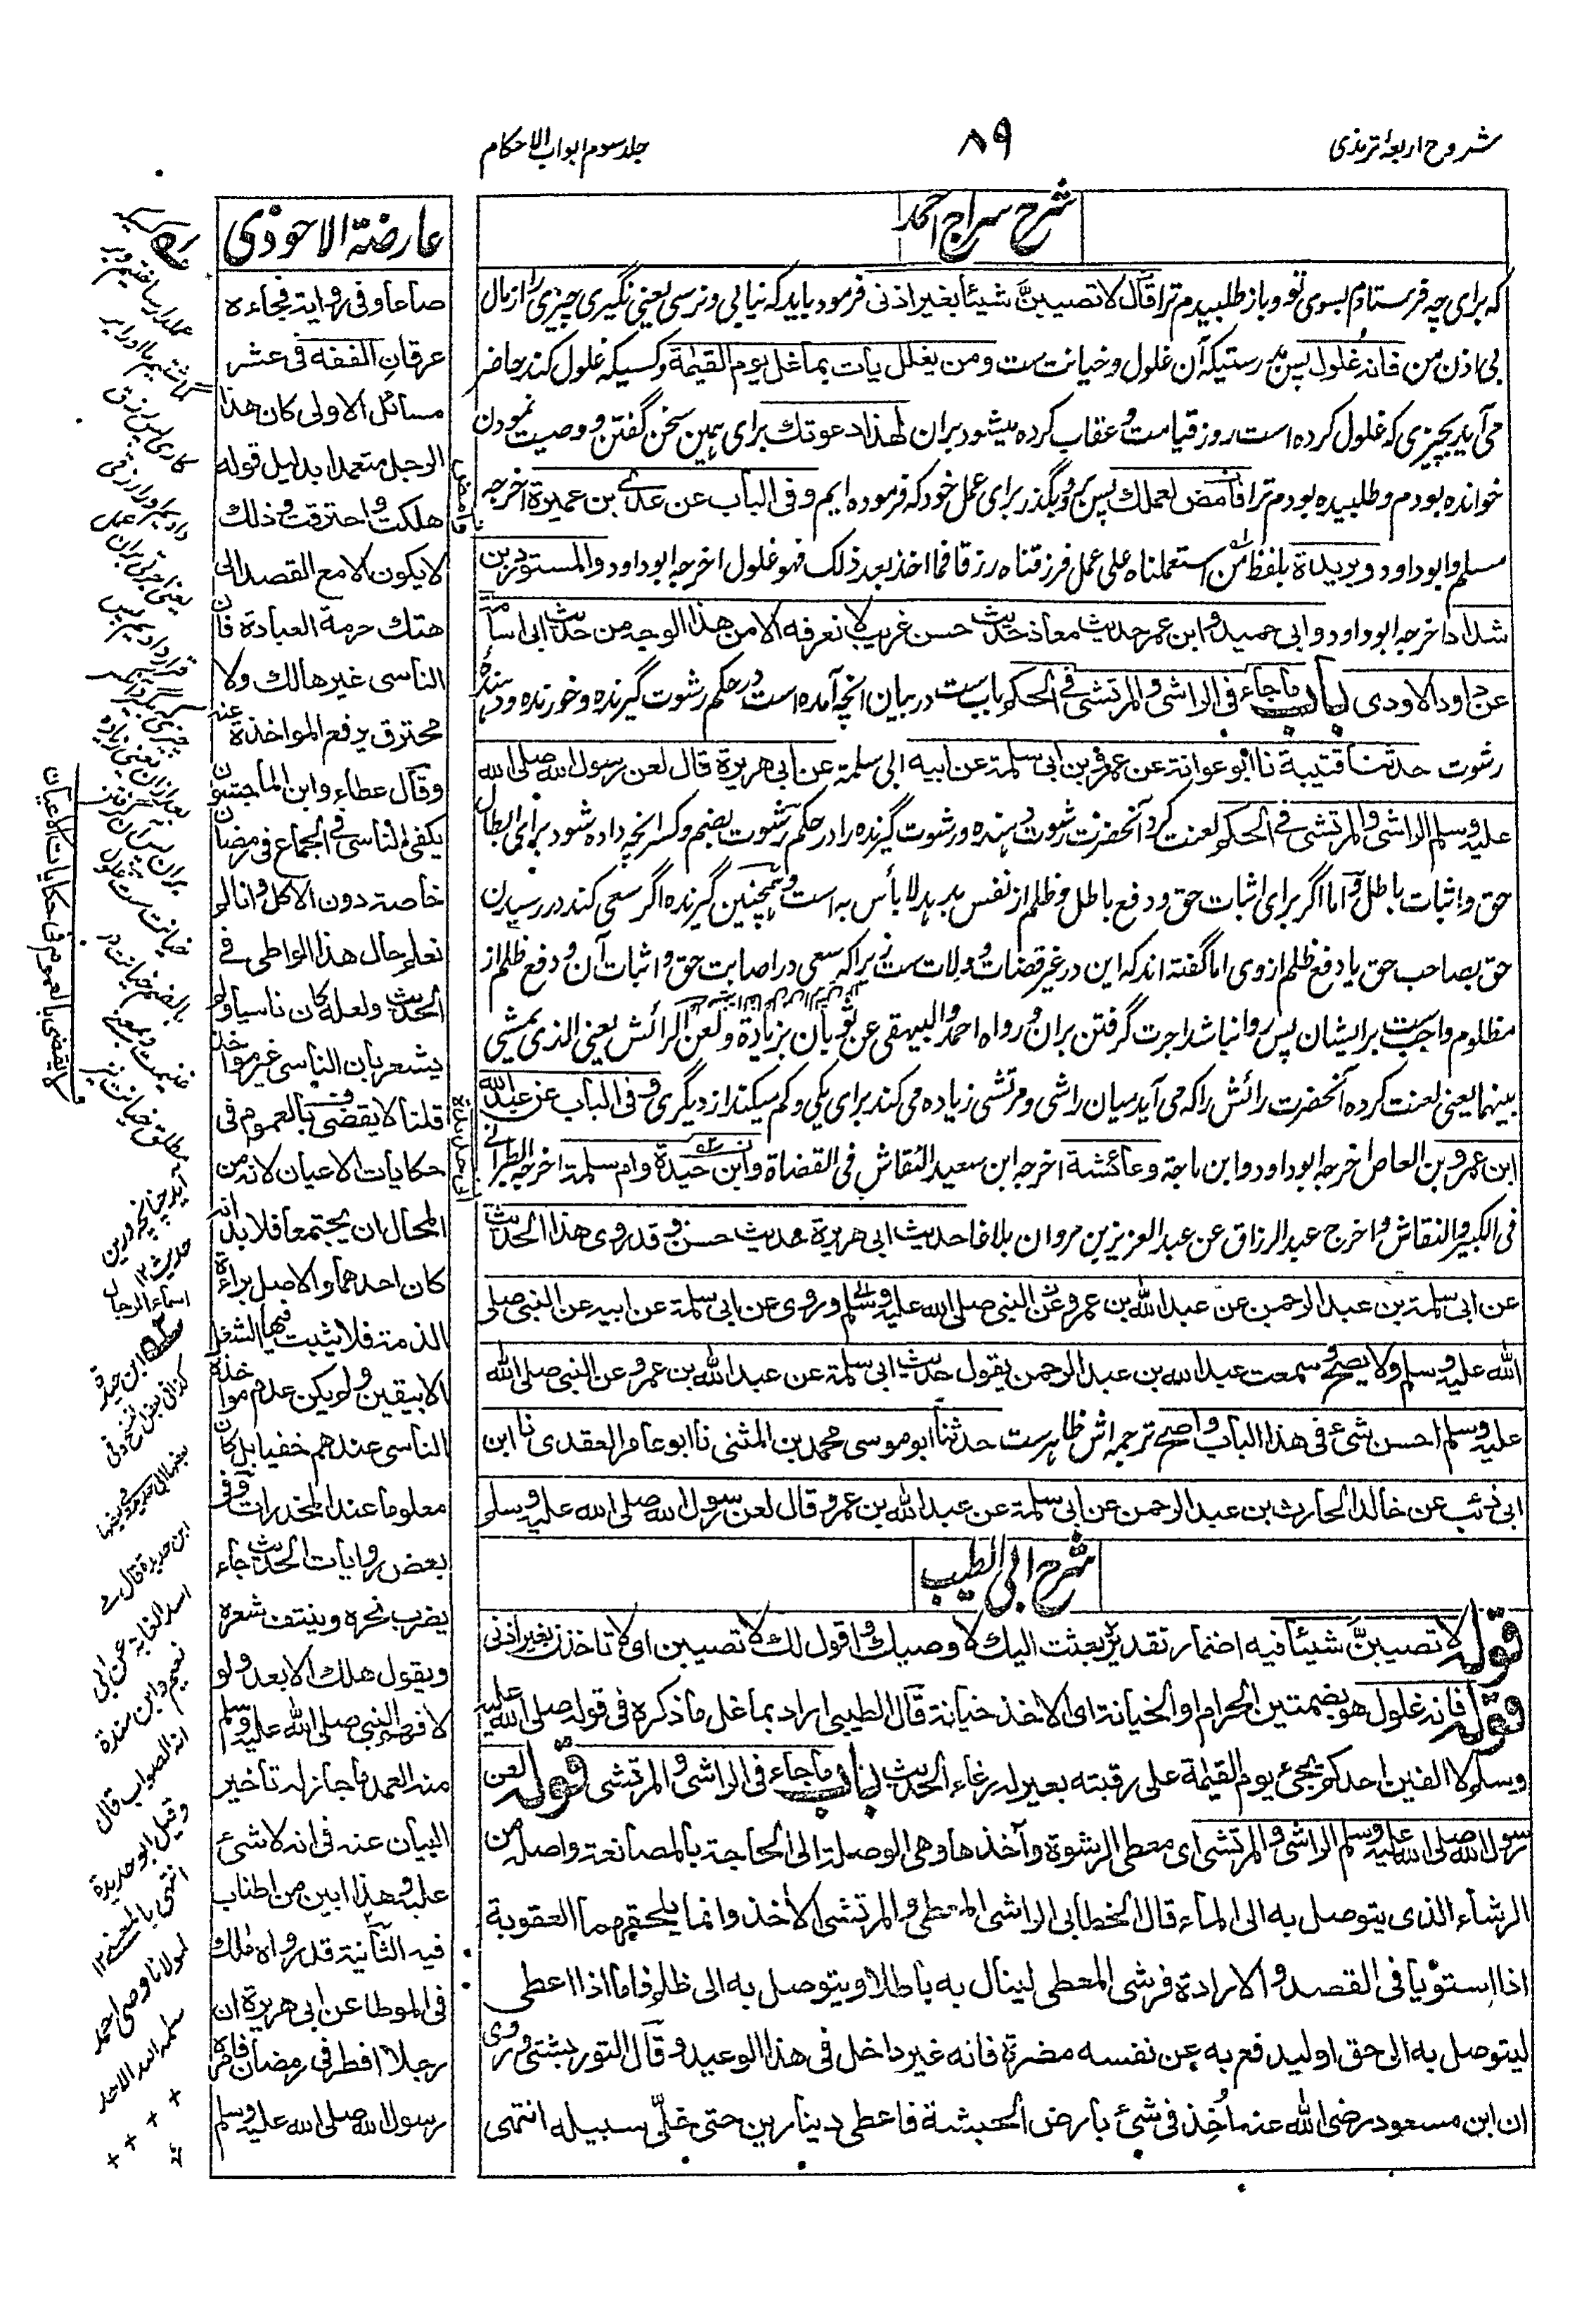 شروح اربعۂ ترمذی
۸۹
جلد سوم ابواب الاحکام
شرح سراج احمد
که برای چه فرستادم بسوی تو و باز طلبیدم ترا قال لا تصیبنّ شیئا بغیر اذنی فرمود باید که نیابی و نرسی یعنی نگیری چیزی را از مال
بی اذن من فانه غُلول پس بدرستیکه آن غلول و خیانت ست ومن یغلل یأت بما غل یوم القیمة و کسیکه غلول کند حاضر
می آید بچیزی که غلول کرده است روز قیامت و عقاب کرده میشود بران لهذا دعوتك برای همین سخن گفتن و وصیت نمودن
خوانده بودم و طلبیده بودم ترا فامض لعملك پس برو و بگذر برای عمل خود که فرموده ایم و فی الباب عن عدی بن عمیرة اخرجه
مسلم و ابو داود و بریدة بلفظ من استعملناه علی عمل فرزقناه رزقا فما اخذ بعد ذلک فهو غلول اخرجه ابو داود و المستورد بن
شداد اخرجه ابو داود و ابی حمید و ابن عمر حدیث معاذ حدیث حسن غریب لا نعرفه الا من هذا الوجه من حدیث ابی اسامة
عن داود الاودی باب ما جاء فی الراشی والمرتشی فی الحکم باب ست در بیان انچه آمده است در حکم رشوت گیرنده و خورنده و دهنده
رشوت حدثنا قتیبة نا ابو عوانة عن عمر بن ابی سلمة عن ابیه ابی سلمة عن ابی هریرة قال لعن رسول الله صلی الله
علیه وسلم الراشی والمرتشی فی الحکم لعنت کرد آنحضرت رشوت دهنده و رشوت گیرنده را در حکم رشوت بضم و کسر انچه داده شود برای ابطال
حق و اثبات باطل و اما اگر برای اثبات حق و دفع باطل و ظلم از نفس بدهد لا بأس به است و همچنین گیرنده اگر سعی کند در رسیدن
حق بصاحب حق یا دفع ظلم از وی اما گفته اند که این در غیر قضات و ولات ست زیرا که سعی در اصابت حق و اثبات آن و دفع ظلم از
مظلوم واجب ست بر ایشان پس روا نباشد اجرت گرفتن بران و رواه احمد و البیهقی عن ثوبان بزیادة و لعن الرائش یعنی الذی یمشی
بینهما یعنی لعنت کرده آنحضرت رائش را که می آید میان راشی و مرتشی زیاده می کند برای یکی و کم میکند از دیگری و فی الباب عن عبد الله
ابن عمرو بن العاص اخرجه ابو داود و ابن ماجة و عائشة اخرجه ابن سعید النقاش فی القضاة و ابن حیدة و ام سلمة اخرجه الطبرانی
فی الکبیر و النقاش و اخرج عبد الرزاق عن عبد العزیز بن مروان بلاغا حدیث ابی هریرة حدیث حسن و قد روی هذا الحدیث
عن ابی سلمة بن عبد الرحمن عن عبد الله بن عمرو عن النبی صلی الله علیه وسلم و روی عن ابی سلمة عن ابیه عن النبی صلی
الله علیه وسلم ولا یصح و سمعت عبد الله بن عبد الرحمن یقول حدیث ابی سلمة عن عبد الله بن عمرو عن النبی صلی الله
علیه وسلم احسن شیٔ فی هذا الباب و اصح ترجمه اش ظاهر ست حدثنا ابو موسی محمد بن المثنی نا ابو عامر العقدی نا ابن
ابی ذئب عن خالد الحارث بن عبد الرحمن عن ابی سلمة عن عبد الله بن عمرو قال لعن رسول الله صلی الله علیه وسلم
شرح ابی الطیب
قوله لا تصیبنّ شیئا فیه اضمار تقدیره بعثت الیك لاوصیك و اقول لك لا تصیبن ای لا تاخذن بغیر اذنی
قوله فانه غلول هو بضمتین الحرام او الخیانة ای الاخذ خیانة قال الطیبی اراد بما غل ما ذکره فی قوله صلی الله علیه
وسلم لا الفین احدکم یجیٔ یوم القیمة علی رقبته بعیر له رغاء الحدیث باب ما جاء فی الراشی و المرتشی قوله لعن
رسول الله صلی الله علیه وسلم الراشی و المرتشی ای معطی الرشوة و آخذها وهی الوصلة الی الحاجة بالمصانعة واصله من
الرشاء الذی یتوصل به الی الماء قال الخطابی الراشی المعطی و المرتشی الآخذ وانما یلحقهما العقوبة
اذا استویا فی القصد و الارادة فرشی المعطی لینال به باطلا و یتوصل به الی ظلم فاما اذا اعطی
لیتوصل به الی حق او لیدفع به عن نفسه مضرة فانه غیر داخل فی هذا الوعید و قال التوربشتی و روی
ان ابن مسعود رضی الله عنه اُخِذ فی شیٔ بارض الحبشة فاعطی دینارین حتی خلّی سبیله انتهی
عارضة الاحوذی
صاعا و فی روایة فجاءه
عرقان الفقه فی عشر
مسائل الاولی کان هذا
الرجل متعمدا بدلیل قوله
هلکت و احترقت و ذلك
لا یکون الا مع القصد الی
هتك حرمة العبادة فان
الناسی غیر هالك ولا
محترق یدفع المواخذة عنه
و قال عطاء و ابن الماجشون
یکفی الناسی فی الجماع فی رمضان
خاصة دون الاکل و انا لم
نعلم حال هذا الواطی فی
الحدیث و لعله کان ناسیا و لم
یشعر بان الناسی غیر مواخذ
قلنا لا یقضی بالعموم فی
حکایات الاعیان لانه من
المحال ان یجتمعا فلا بد انه
کان احدهما و الاصل براءة
الذمة فلا یثبت فیها الشغل
الا بیقین و لو یکن عدم مواخذة
الناسی عندهم خفیا بل کان
معلوما عند المخدرات و فی
بعض روایات الحدیث جاء
یضرب نحره و ینتف شعره
و یقول هلك الابعد و لو
لا فهم النبی صلی الله علیه وسلم
منه العمد ما جاز له تأخیر
البیان عنه فی انه لا شیٔ
علیه و هذا ابین من اطناب
فیه الثانیة قد رواه مالك
فی الموطا عن ابی هریرة ان
رجلا افطر فی رمضان فامره
رسول الله صلی الله علیه وسلم
لا یقضی بالعموم فی حکایات الاعیان
آید چنانچه درین
حدیث ۱۲
اسماء الرجال
ابن حدیدة قال فی
اسد الغابة عن ابی
نعیم و ابن مندة
انه الصواب قال
و قیل ابو حدیدة
انتهی بالمعنی ۱۲
مولانا وصی احمد
سلمه الله الاحد